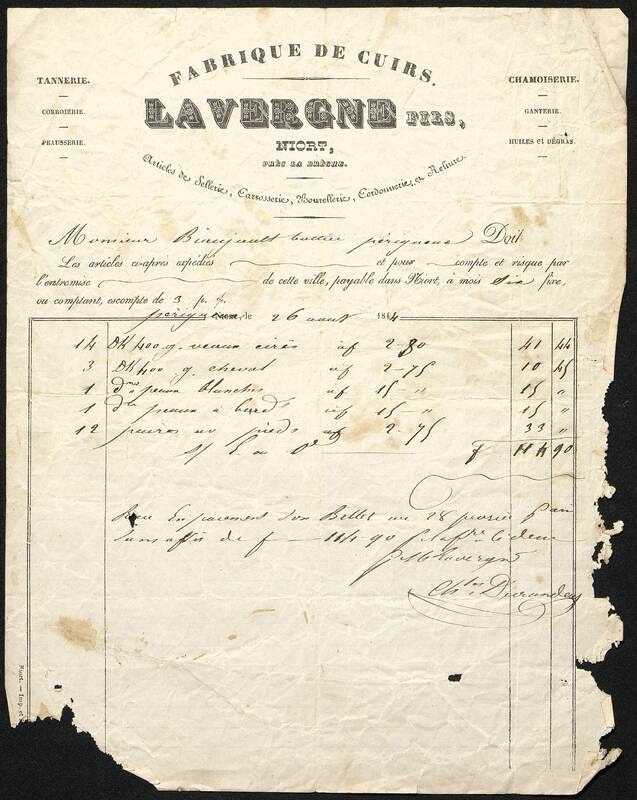 FABRIQUE DE CUIRS.
TANNERIE.
CORROIERIE.
PEAUSSERIE.
CHAMOISERIE.
GANTERIE.
HUILES et DÉGRAS.
LAVERGNE FILS,
NIORT,
PRÈS LA BRÈCHE.
Articles de Sellerie, Carrosserie, Bourellerie, Cordonnerie, et Reliure.
Monsieur périgueux Doit
Les articles ci-apres expédiés et pour compte et risque par
l'entromise de cette ville, payable dans Niort, à mois Six fixe,
ou comptant, escompte de 3 p. %.
périgueux Niort, le 26 aout 1844
14 DK 400 g. veaux cirés af 2-80 41 44
3 DK 400 g. cheval af 2-75 10 45
1 dne peaux blanches af 15 " 15 "
1 dne peaux à bords af 15 - " 15 "
12 paires av pieds af 2-75 33 "
f 114 90
En paiement d'un Billet au 28
de f 114 90
Lavergne
Ch.les Durandeau
Niort. — Imp. et